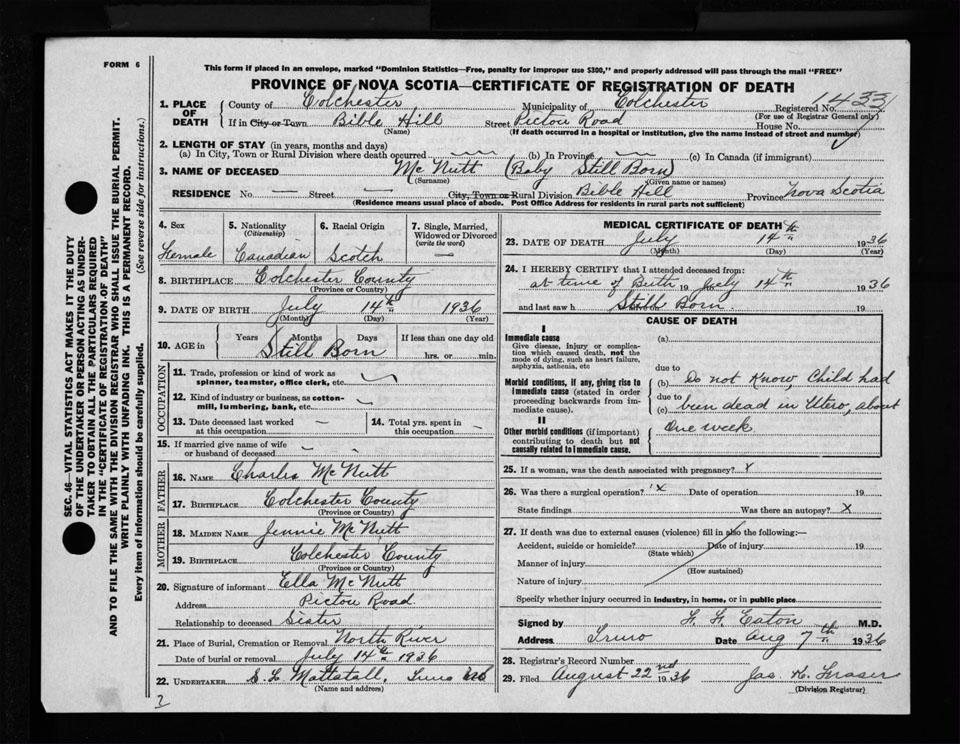 FORM 6
This form if placed in an envelope, marked "Dominion Statistics—Free, penalty for improper use $300," and properly addressed will pass through the mail "FREE"
PROVINCE OF NOVA SCOTIA—CERTIFICATE OF REGISTRATION OF DEATH
1. PLACE OF DEATH
County of Colchester Municipality of Colchester Registered No. 1433
(For use of Registrar General only)
If in City or Town Bible Hill Street Pictou Road House No.
(Name) (If death occurred in a hospital or institution, give the name instead of street and number)
2. LENGTH OF STAY (in years, months and days)
(a) In City, Town or Rural Division where death occurred (b) In Province (c) In Canada (if immigrant)
3. NAME OF DECEASED Mc Nutt (Baby Still Born)
(Surname) (Given name or names)
RESIDENCE No. — Street — City, Town or Rural Division Bible Hill Province Nova Scotia
(Residence means usual place of abode. Post Office Address for residents in rural parts not sufficient)
4. Sex 5. Nationality 6. Racial Origin 7. Single, Married, Widowed or Divorced
(Citizenship) (write the word)
Female Canadian Scotch —
8. BIRTHPLACE Colchester County
(Province or County)
9. DATE OF BIRTH July 14th 1936
(Month) (Day) (Year)
10. AGE in Years Months Days If less than one day old
Still Born hrs. or min.
OCCUPATION
11. Trade, profession or kind of work as spinner, teamster, office clerk, etc.
12. Kind of industry or business, as cotton-mill, lumbering, bank, etc.
13. Date deceased last worked at this occupation — 14. Total yrs. spent in this occupation —
15. If married give name of wife or husband of deceased — —
FATHER
16. NAME Charles Mc Nutt
17. BIRTHPLACE Colchester County
(Province or Country)
MOTHER
18. MAIDEN NAME Jennie Mc Nutt
19. BIRTHPLACE Colchester County
(Province or Country)
20. Signature of informant Ella Mc Nutt
Address Pictou Road
Relationship to deceased Sister
21. Place of Burial, Cremation or Removal North River
Date of burial or removal July 14th 1936
22. UNDERTAKER S. L. Mattatall, Truro NS
(Name and address)
2
MEDICAL CERTIFICATE OF DEATH
23. DATE OF DEATH July 14th 1936
(Month) (Day) (Year)
24. I HEREBY CERTIFY that I attended deceased from:
at time of Birth 19 July 14th 1936
and last saw h alive on Still Born 19
CAUSE OF DEATH
I
Immediate cause
Give disease, injury or complication which caused death, not the mode of dying, such as heart failure, asphyxia, asthenia, etc
(a)
due to
Morbid conditions, if any, giving rise to immediate cause (stated in order proceeding backwards from immediate cause).
(b) Do not know, Child had
due to
(c) been dead in Utero, about
One week
II
Other morbid conditions (if important) contributing to death but not causally related to immediate cause.
25. If a woman, was the death associated with pregnancy? x
26. Was there a surgical operation? x Date of operation 19
State findings Was there an autopsy? X
27. If death was due to external causes (violence) fill in also the following:—
Accident, suicide or homicide? Date of injury 19
(State which)
Manner of injury
(How sustained)
Nature of injury
Specify whether injury occurred in industry, in home, or in public place
Signed by Eaton M.D.
Address Truro Date Aug 7th 1936
28. Registrar's Record Number
29. Filed August 22nd 1936 Jas. K. Fraser
(Division Registrar)
SEC. 46—VITAL STATISTICS ACT MAKES IT THE DUTY
OF THE UNDERTAKER OR PERSON ACTING AS UNDER-
TAKER TO OBTAIN ALL THE PARTICULARS REQUIRED
IN THE "CERTIFICATE OF REGISTRATION OF DEATH"
AND TO FILE THE SAME WITH THE DIVISION REGISTRAR WHO SHALL ISSUE THE BURIAL PERMIT.
WRITE PLAINLY WITH UNFADING INK. THIS IS A PERMANENT RECORD.
Every item of information should be carefully supplied. (See reverse side for instructions.)